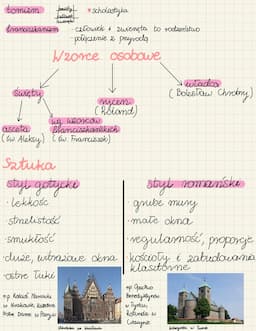 tomizm
*scholastyka
franciszkanizm - człowiek i zwierzęta to rodzeństwo
- połączenie z przyrodą
Wzorce osobowe
święty
rycerz
(Roland)
władca
(Bolesław Chrobry)
asceta
(św. Aleksy)
wg wzorców
franciszkańskich
(św. Franciszek)
Sztuka
styl gotycki
· lekkość
· strzelistość
· smukłość
· duże, witrażowe okna
ostre łuki
np. Kościół Mariacki
w Krakowie, katedra
Notre Dame w Paryżu
styl romański
· grube mury
· małe okna
· regularność, proporcje
kościoły i zabudowania
klasztorne
np. Opactwo
Benedyktynów
w Tyńcu,
Rotunda w
Cieszynie